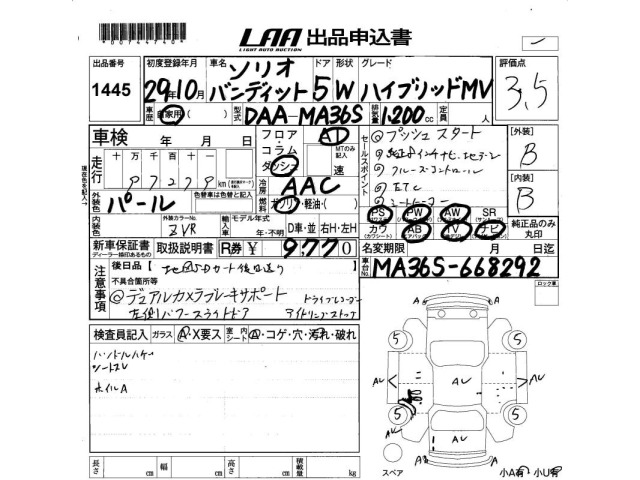 LAA 出品申込書
LIGHT AUTO AUCTION
出品番号 1445
初度登録年月 29年10月
車名 ソリオ バンディット
ドア 形状 5W
グレード ハイブリッドMV
評価点 3.5
車歴 自家用( )
型式 DAA-MA36S
排気量 1,200cc
定員 人
車検 年 月 日
フロア・コラム ダッシュ
AD
MTのみ記入 速
走行 十 万 千 百 十 一
97279 km
現在色を記入
外装色 パール
色替車は色替と記入
冷房 AAC
燃料 ガソリン・軽油・( )
内装色
外装カラーNo. ZVR
輸入車 モデル年式 年・不明
D車・並 右H・左H
新車保証書
ディーラー検印あるもの
取扱説明書
R券 ¥ 9,770
セールスポイント
◎プッシュスタート
◎純正8インチナビ.地デジ
◎クルーズコントロール
◎ETC
◎シートヒーター
PS PW AW SR
(サンルーフ)
カワ AB TV ナビ
(カワシート) (エアバッグ)
純正品のみ丸印
[外装] B
[内装] B
名変期限 月 日迄
車台No. MA36S-668292
注意事項
後日品【地デジSDカード後日送り
不具合箇所等
◎デュアルカメラブレーキサポート ドライブレコーダー
左側パワースライドドア アイドリングストップ
ロック車
検査員記入 ガラス A・X要ス 室内シート A・コゲ・穴・汚れ・破れ
ハンドルハゲ
シートスレ
ホイルA
A A
5 5
AU AU AU
5 5
AU
A A
スペア
小A有・小U有
長さ cm 幅 cm 高さ cm 積載量 kg